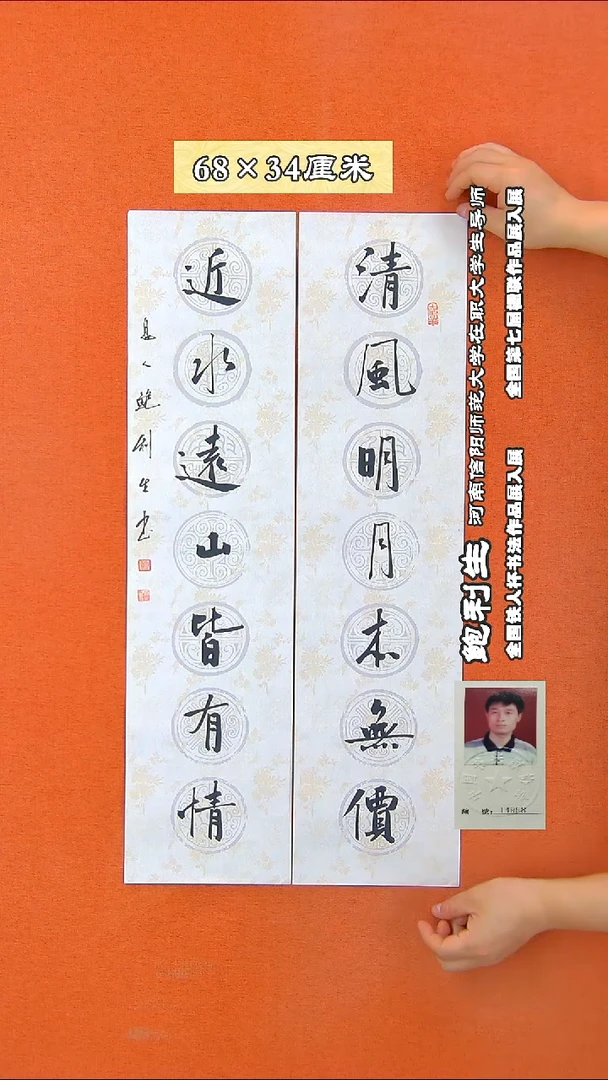 68×34厘米
清風明月本無價
近水遠山皆有情
息人鲍利生书
鲍利生
河南信阳师范大学在职大学生导师
全国第七届楹联作品展入展
全国铁人杯书法作品展入展